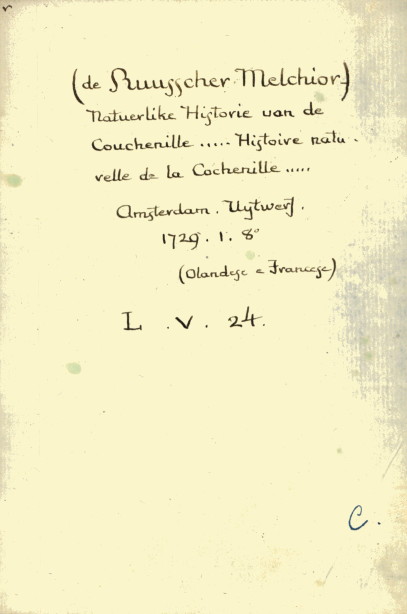 (de Ruusscher Melchior)
Natuerlike Historie van de
Couchenille ..... Histoire natu-
relle de la Cochenille .....
Amsterdam. Uytwerf.
1729. 1. 8°
(Olandese e Francese)
L. V. 24.
C.